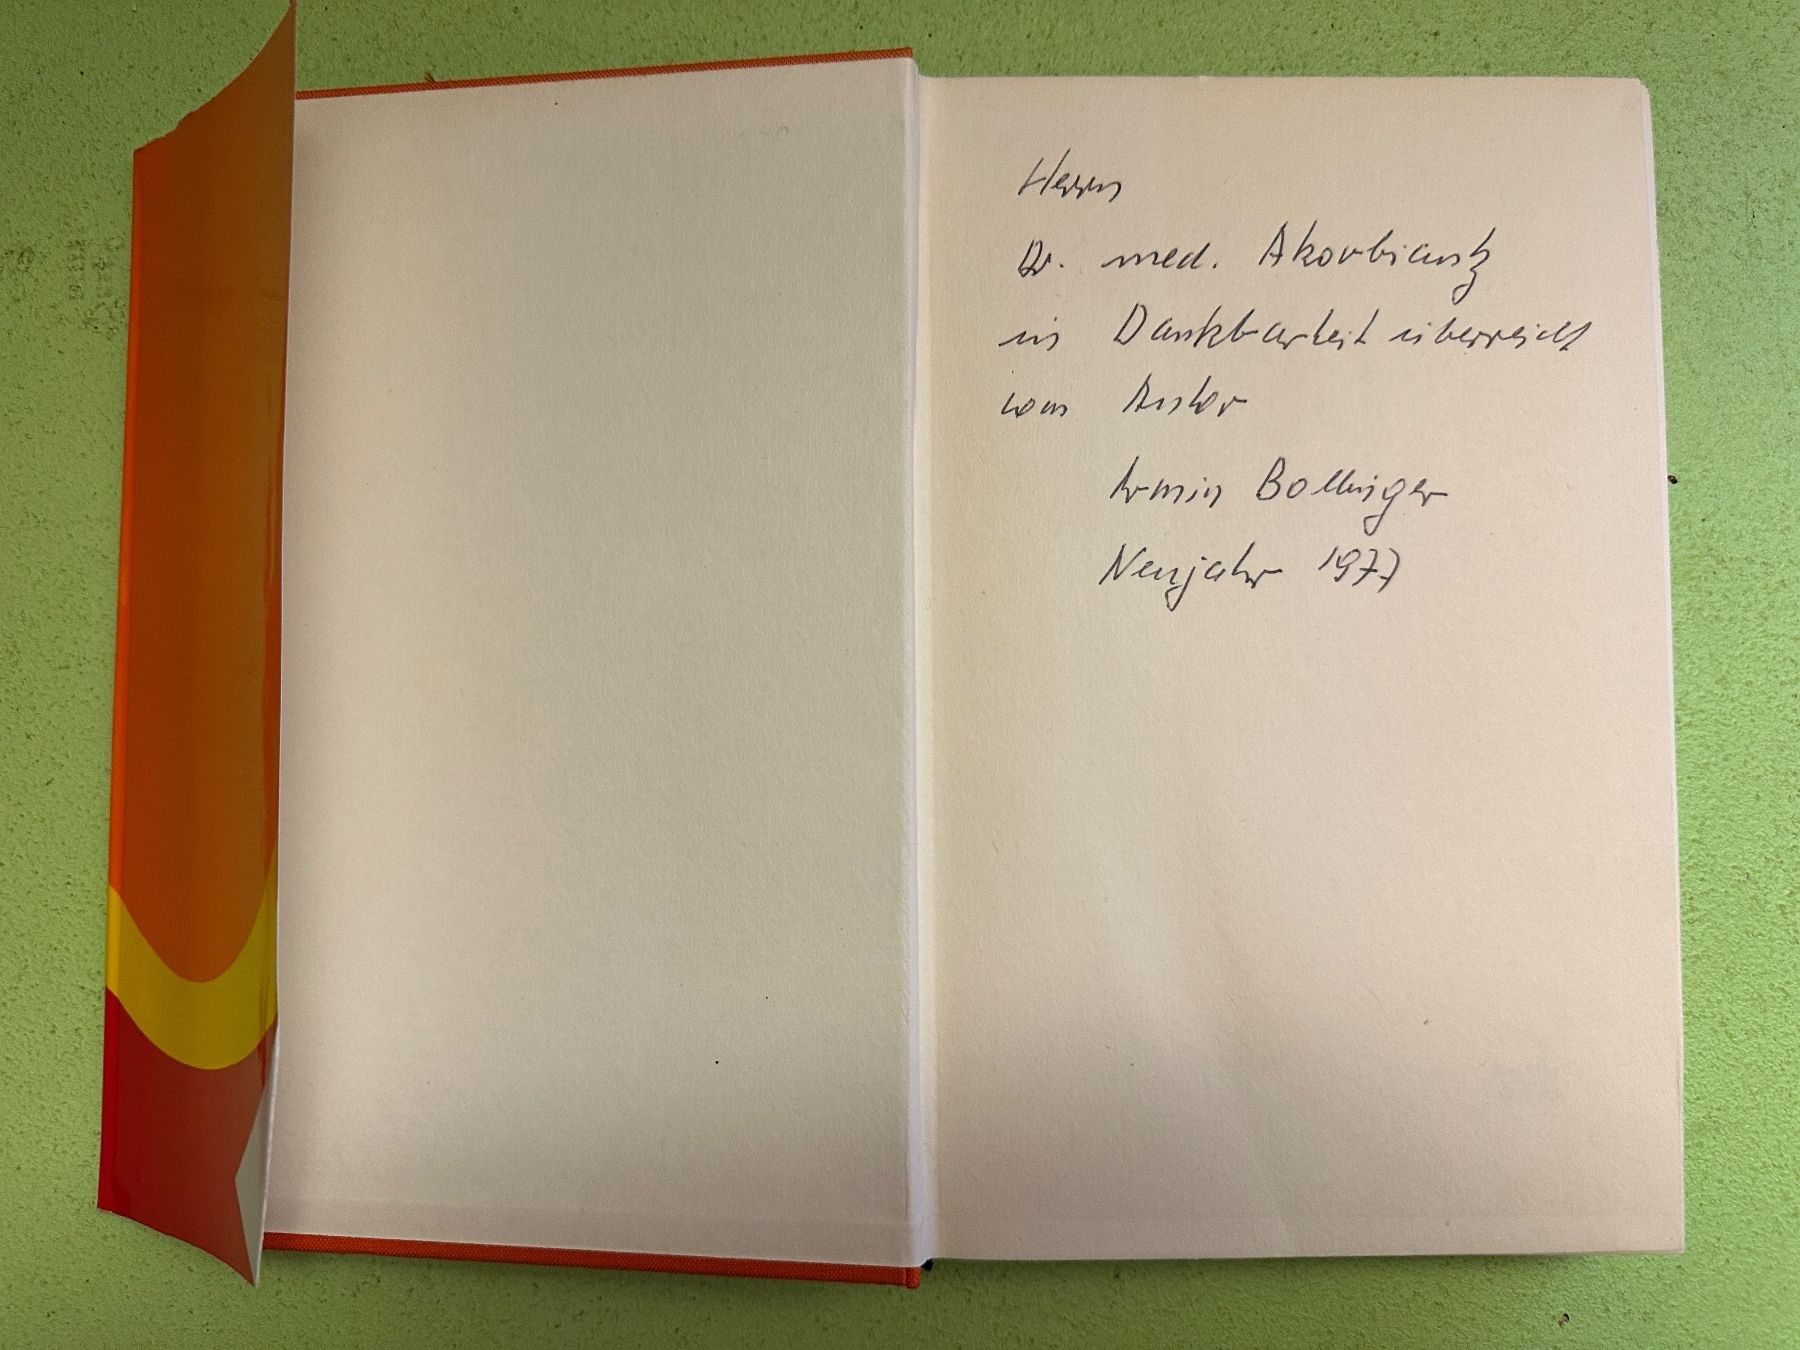 Herrn
Dr. med. Akovbiantz
in Dankbarkeit überreicht
vom Autor
Armin Bollinger
Neujahr 1977